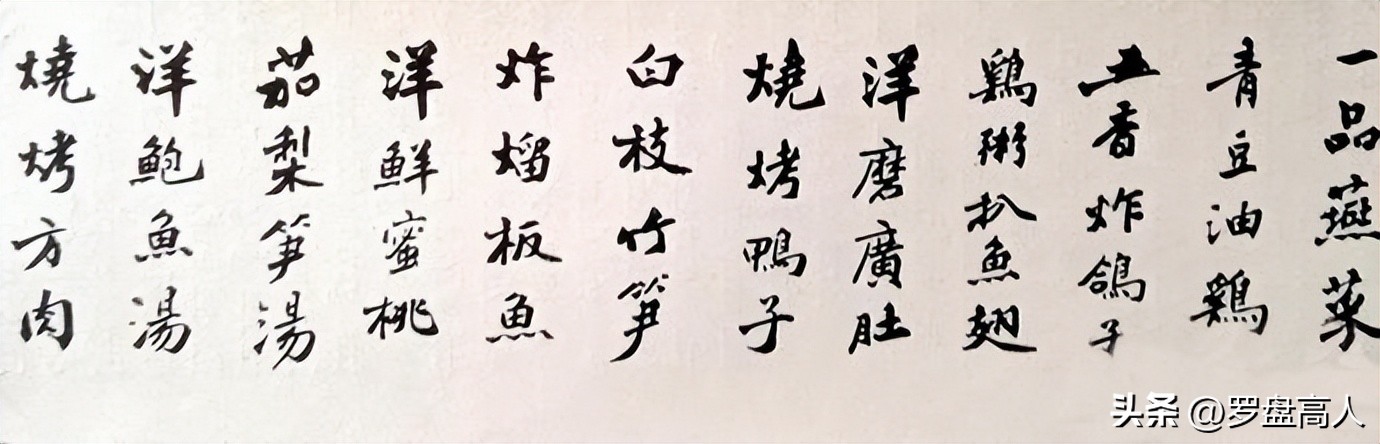 一品燕菜
青豆油鷄
五香炸鴿子
鷄粥扒魚翅
洋磨廣肚
燒烤鴨子
白枝竹笋
炸熘板魚
洋鮮蜜桃
茄梨笋湯
洋鮑魚湯
燒烤方肉
头条 @罗盘高人